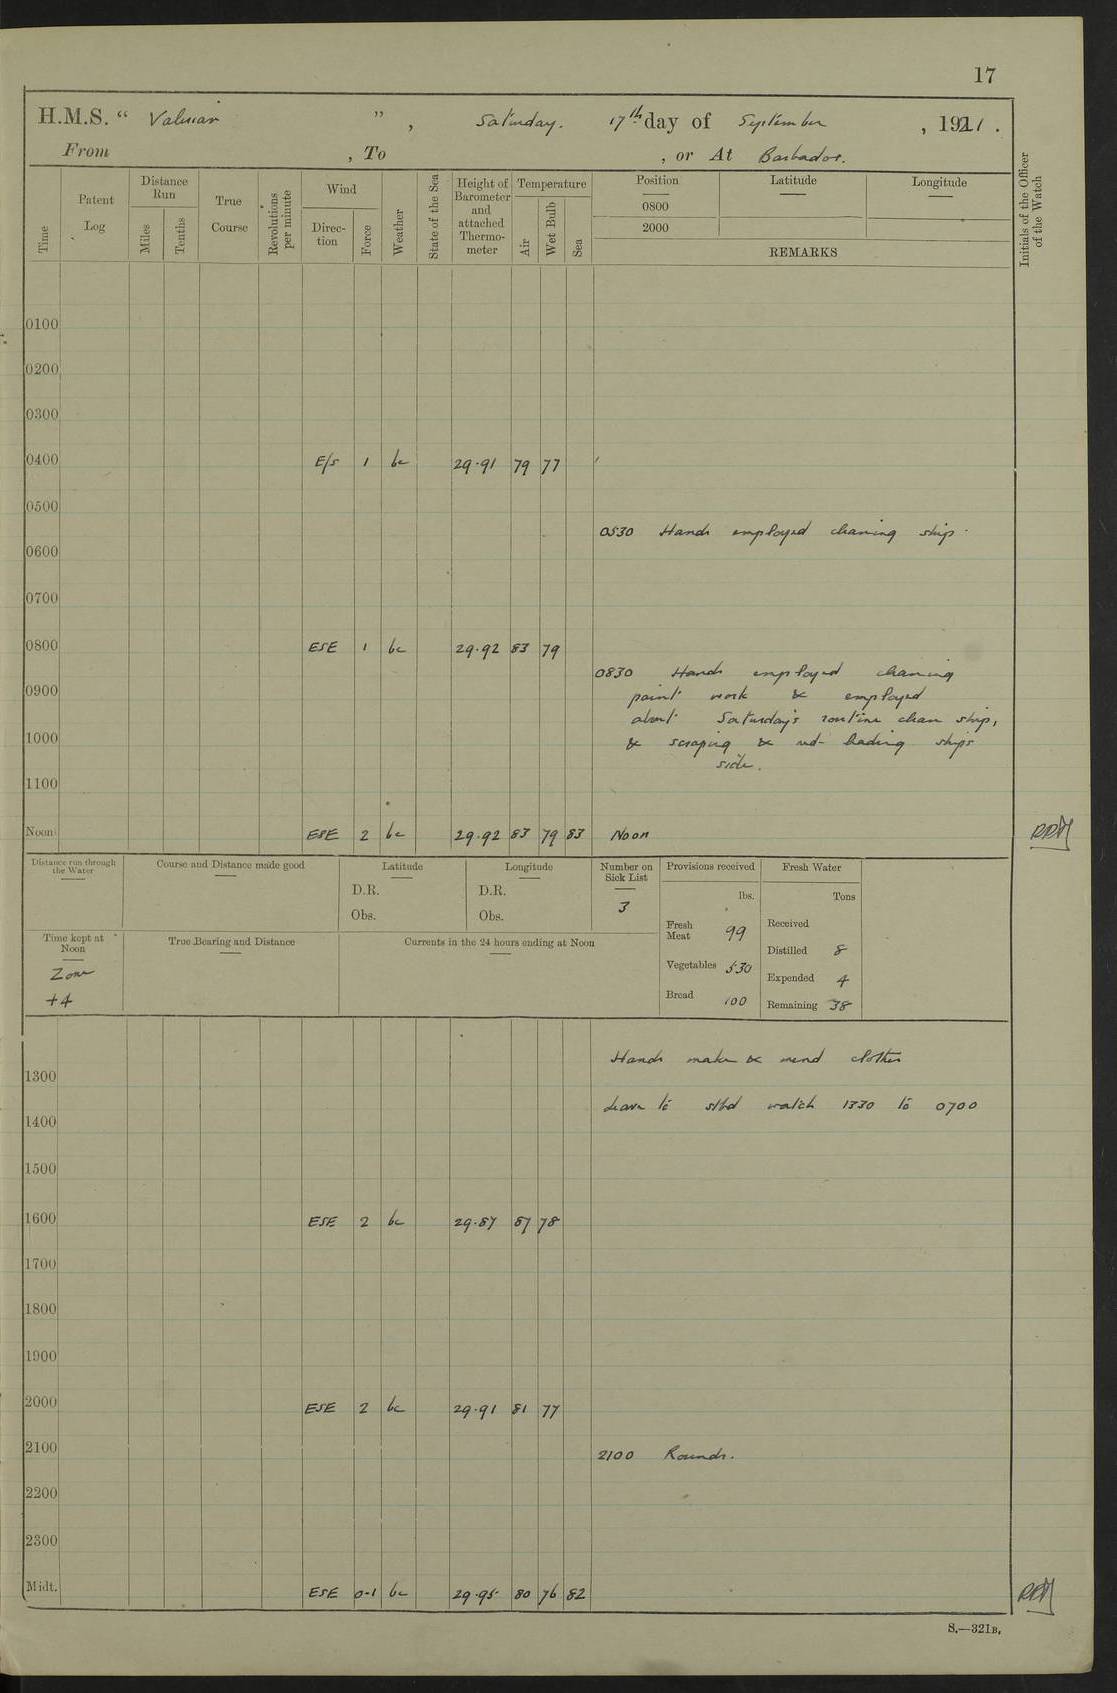 17
H.M.S. “ Valerian ” , Saturday. 17th day of September , 1921 .
From , To , or At Barbados.
Time
Patent Log
Distance Run
Miles
Tenths
True Course
Revolutions per minute
Wind
Direc-tion
Force
Weather
State of the Sea
Height of Barometer and attached Thermo-meter
Temperature
Air
Wet Bulb
Sea
Position
Latitude
Longitude
0800
2000
REMARKS
Initials of the Officer of the Watch
0100
0200
0300
0400 E/S 1 bc 29.91 79 77
0500
0530 Hands employed cleaning ship.
0600
0700
0800 ESE 1 bc 29.92 83 79
0830 Hands employed cleaning
0900
paint work & employed
about Saturday's routine clean ship,
1000
& scraping & red-leading ships
side.
1100
Noon ESE 2 bc 29.92 83 79 83 Noon
Distance run through the Water
Course and Distance made good
Latitude
D.R.
Obs.
Longitude
D.R.
Obs.
Number on Sick List
3
Provisions received
lbs.
Fresh Meat 99
Vegetables 530
Bread 100
Fresh Water
Tons
Received
Distilled 8
Expended 4
Remaining 38
Time kept at Noon
Zone
+4
True Bearing and Distance
Currents in the 24 hours ending at Noon
Hands make & mend clothes
1300
Leave to stbd watch 1330 to 0700
1400
1500
1600 ESE 2 bc 29.87 87 78
1700
1800
1900
2000 ESE 2 bc 29.91 81 77
2100
2100 Rounds.
2200
2300
Midt. ESE 0-1 bc 29.95 80 76 82
S.—321B.